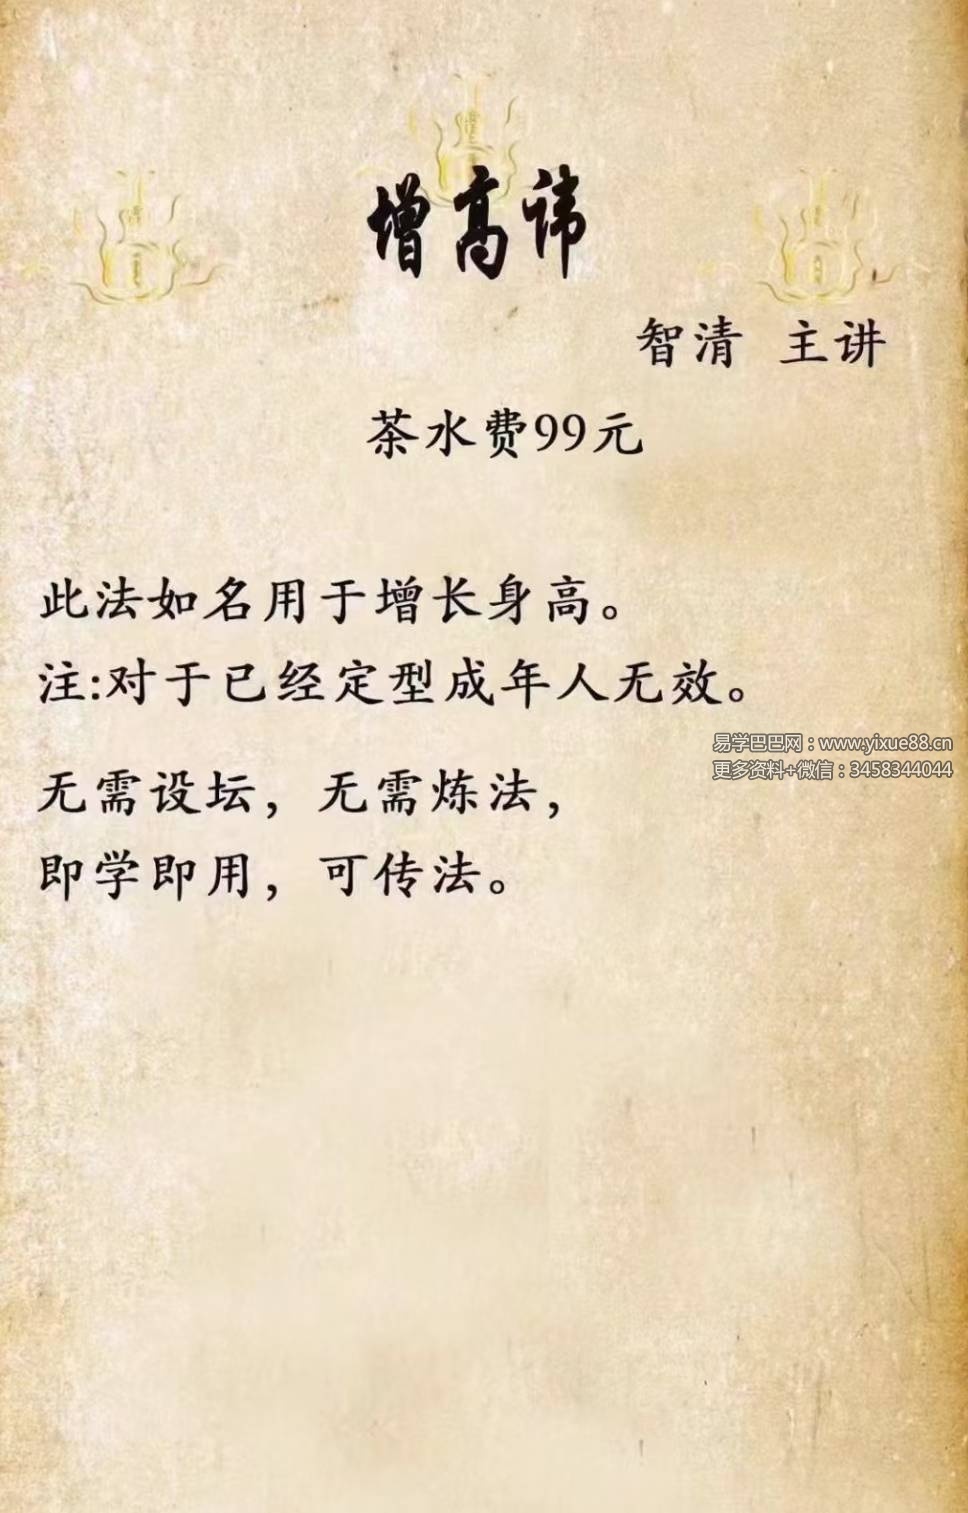 增高讳
智清 主讲
茶水费99元
此法如名用于增长身高。
注:对于已经定型成年人无效。
易学巴巴网：www.yixue88.cn
更多资料+微信：3458344044
无需设坛，无需炼法，
即学即用，可传法。